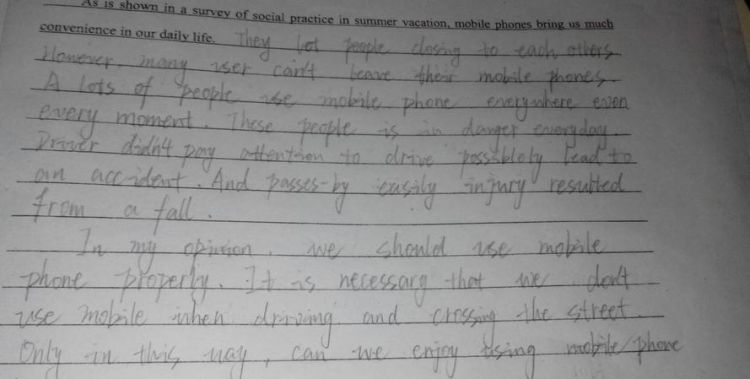 As is shown in a survey of social practice in summer vacation, mobile phones bring us much
convenience in our daily life. They let people closing to each others.
However, many user can't leave their mobile phones.
A lots of people use mobile phone everywhere even
every moment. These people is in danger everyday.
Driver didn't pay attention to drive possiblely lead to
an accident. And passes-by easily injury resulted
from a fall.
In my opinion, we should use mobile
phone properly. It is necessary that we don't
use mobile when driving and crossing the street.
Only in this way, can we enjoy using mobile phone